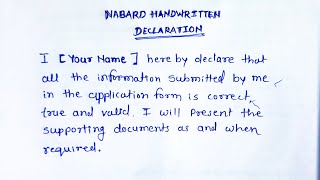 NABARD HANDWRITTEN
DECLARATION
I [Your Name] here by declare that
all the information submitted by me
in the application form is correct,
true and valid. I will Present the
supporting documents as and when
required.